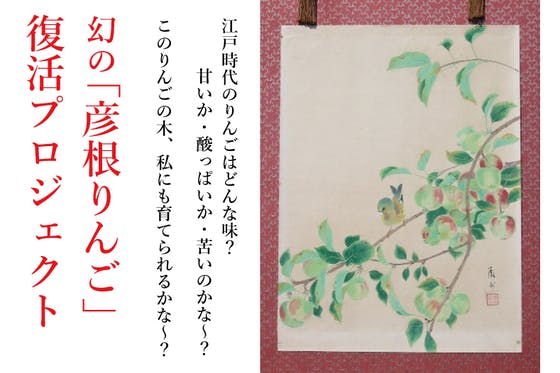 江戸時代のりんごはどんな味?
甘いか・酸っぱいか・苦いのかな〜?
このりんごの木、私にも育てられるかな〜?
幻の「彦根りんご」
復活プロジェクト